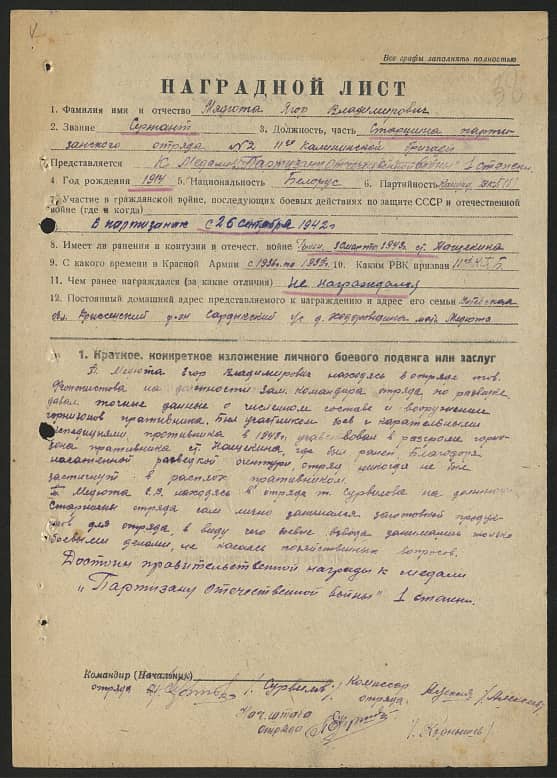 Все графы заполнять полностью
НАГРАДНОЙ ЛИСТ
1. Фамилия имя и отчество Медюта Ягор Владимирович
2. Звание Сержант 3. Должность, часть Старшина парти-
занского отряда №2 11ой Калининской бригады
Представляется К Медали "Партизану Отечественной войны" 1 степени
4. Год рождения 1914 5. Национальность Белорус 6. Партийность
7. Участие в гражданской войне, последующих боевых действиях по защите СССР и отечественной
войне (где и когда)
В партизанах с 26 октября 1942г
8. Имеет ли ранения и контузии в отечест. войне 1943г. ст. Нащекина
9. С какого времени в Красной Армии с 1936г. по 1938г. 10. Каким РВК призван
11. Чем ранее награждался (за какие отличия) не награждался
12. Постоянный домашний адрес представляемого к награждению и адрес его семьи Витебская
обл. Дриссенский р-он Сарьинский с/с д. мать Медюта
1. Краткое, конкретное изложение личного боевого подвига или заслуг
Т. Медюта Ягор Владимирович находясь в отряде тов.
на должности зам. командира отряда по разведке
давал точные данные о численном составе и вооружении
гарнизонов противника. Был участником боев с карательными
экспедициями противника в 1943г. участвовал в разгроме гарни-
зона противника ст. Нащекина, где был ранен. Благодаря
налаженной разведкой агентуры, отряд никогда не был
застигнут в расплох противником.
Т. Медюта Е.В. находясь в отряде т. Сурвилова на должности
Старшины отряда сам лично занимался заготовкой продук-
тов для отряда, в виду чего боевые взвода занимались только
боевыми делами, не касаясь хозяйственных вопросов.
Достоин правительственной награды к медали
„Партизану Отечественной войны" 1 степени.
Командир (Начальник)
отряда /Сурвилов/ Комиссар
отряда
Нач. штаба
отряда